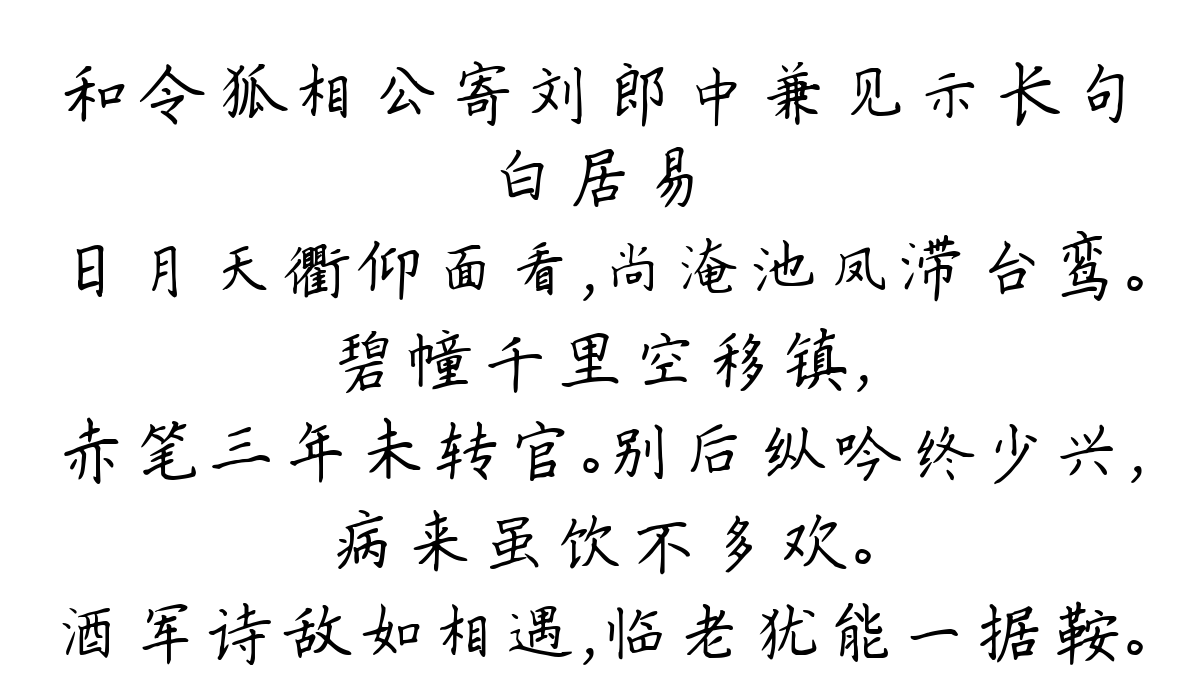 和令狐相公寄刘郎中兼见示长句
白居易
日月天衢仰面看,尚淹池凤滞台鸾。
碧幢千里空移镇,
赤笔三年未转官。别后纵吟终少兴,
病来虽饮不多欢。
酒军诗敌如相遇,临老犹能一据鞍。